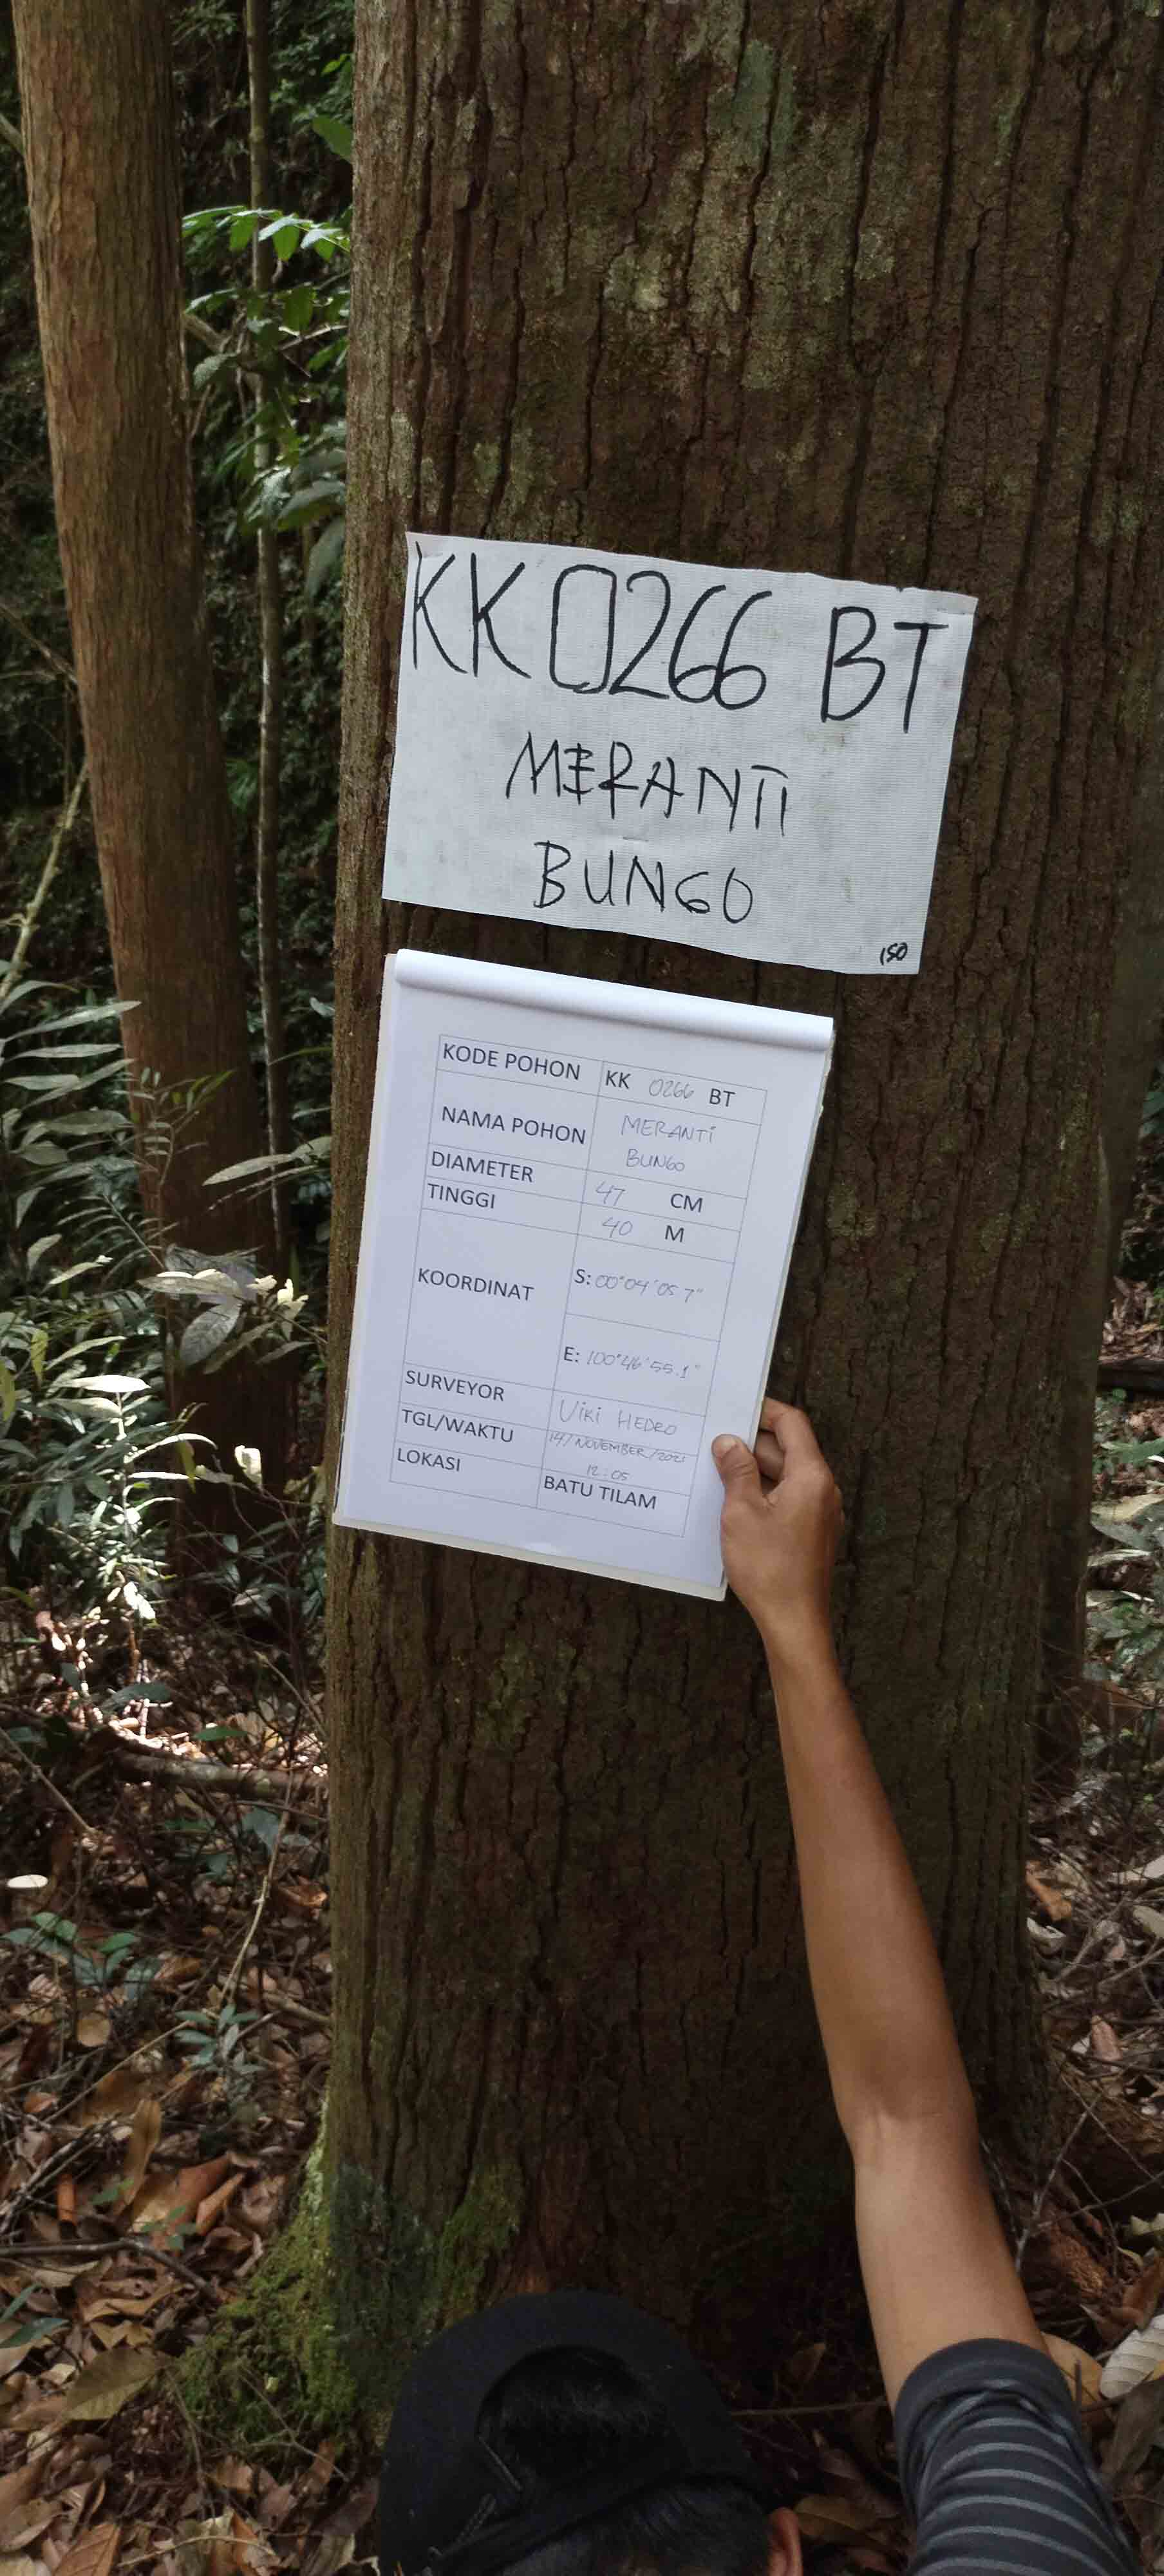 KK 0266 BT
MERANTI
BUNGO
150
KODE POHON KK 0266 BT
NAMA POHON MERANTI
BUNGO
DIAMETER 47 CM
TINGGI 40 M
KOORDINAT S: 00°04'05.7"
E: 100°46'55.1"
SURVEYOR VIKI HEDRO
TGL/WAKTU 14/NOVEMBER/2021
12:05
LOKASI BATU TILAM